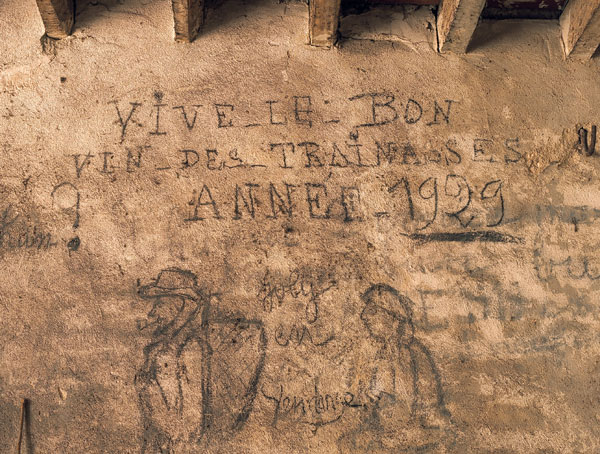 VIVE_LE_BON
VIN_DES_TRAINASSES
ANNEE_1929
?
en